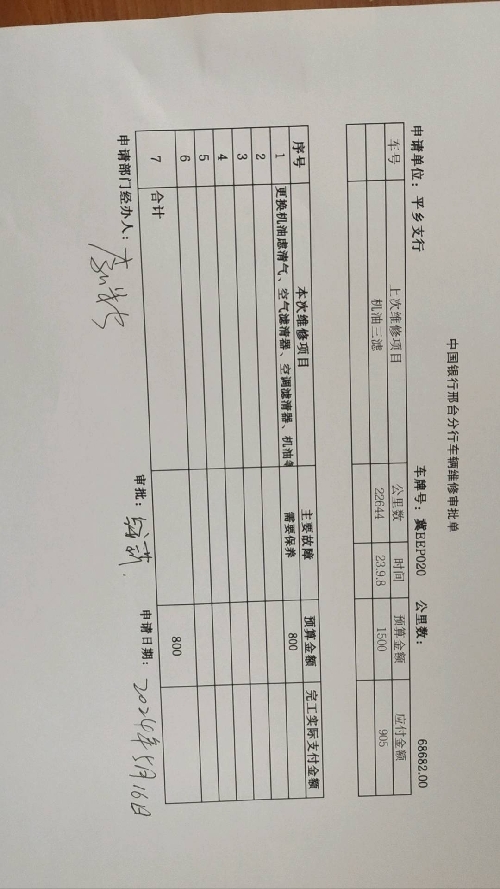 中国银行邢台分行车辆维修审批单
申请单位：平乡支行 车牌号：冀EEP020 公里数： 68682.00
车号 上次维修项目 公里数 时间 预算金额 应付金额
机油三滤 22644 23.9.8 1500 905
序号 本次维修项目 主要故障 预算金额 完工实际支付金额
1 更换机油虑清气、空气滤清器、空调滤清器、机油 需要保养 800
2
3
4
5
6
7 合计 800
申请部门经办人： 审批： 申请日期： 2024年5月16日